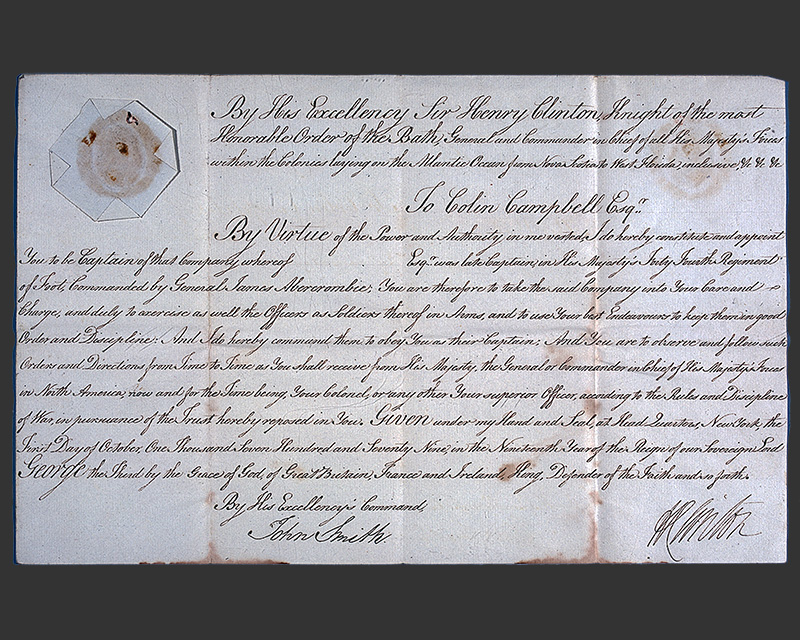 By His Excellency Sir Henry Clinton, Knight of the most
Honorable Order of the Bath, General and Commander in Chief of all His Majesty's Forces
within the Colonies laying on the Atlantic Ocean from Nova Scotia to West Florida, inclusive, &c. &c. &c
To Colin Campbell Esqr.
By Virtue of the Power and Authority in me vested, I do hereby constitute and appoint
You to be Captain of that Company whereof Esqr. was late Captain, in His Majesty's Sixty Fourth Regiment
of Foot, Commanded by General James Abercrombie; You are therefore to take the said Company into Your Care and
Charge, and duly to exercise as well the Officers as Soldiers thereof in Arms, and to use Your best Endeavours to keep them in good
Order and Discipline: And I do hereby command them to obey You as their Captain; And You are to observe and follow such
Orders and Directions from Time to Time as You shall receive from His Majesty, the General or Commander in Chief of His Majesty's Forces
in North America, now and for the Time being, Your Colonel, or any other Your superior Officer, according to the Rules and Discipline
of War, in pursuance of the Trust hereby reposed in You. Given under my Hand and Seal, at Head Quarters, New York, the
First Day of October, One Thousand Seven Hundred and Seventy Nine, in the Nineteenth Year of the Reign of our Sovereign Lord
George the Third by the Grace of God, of Great Britain, France and Ireland, King, Defender of the Faith and so forth.
By His Excellency's Command,
John Smith
H Clinton